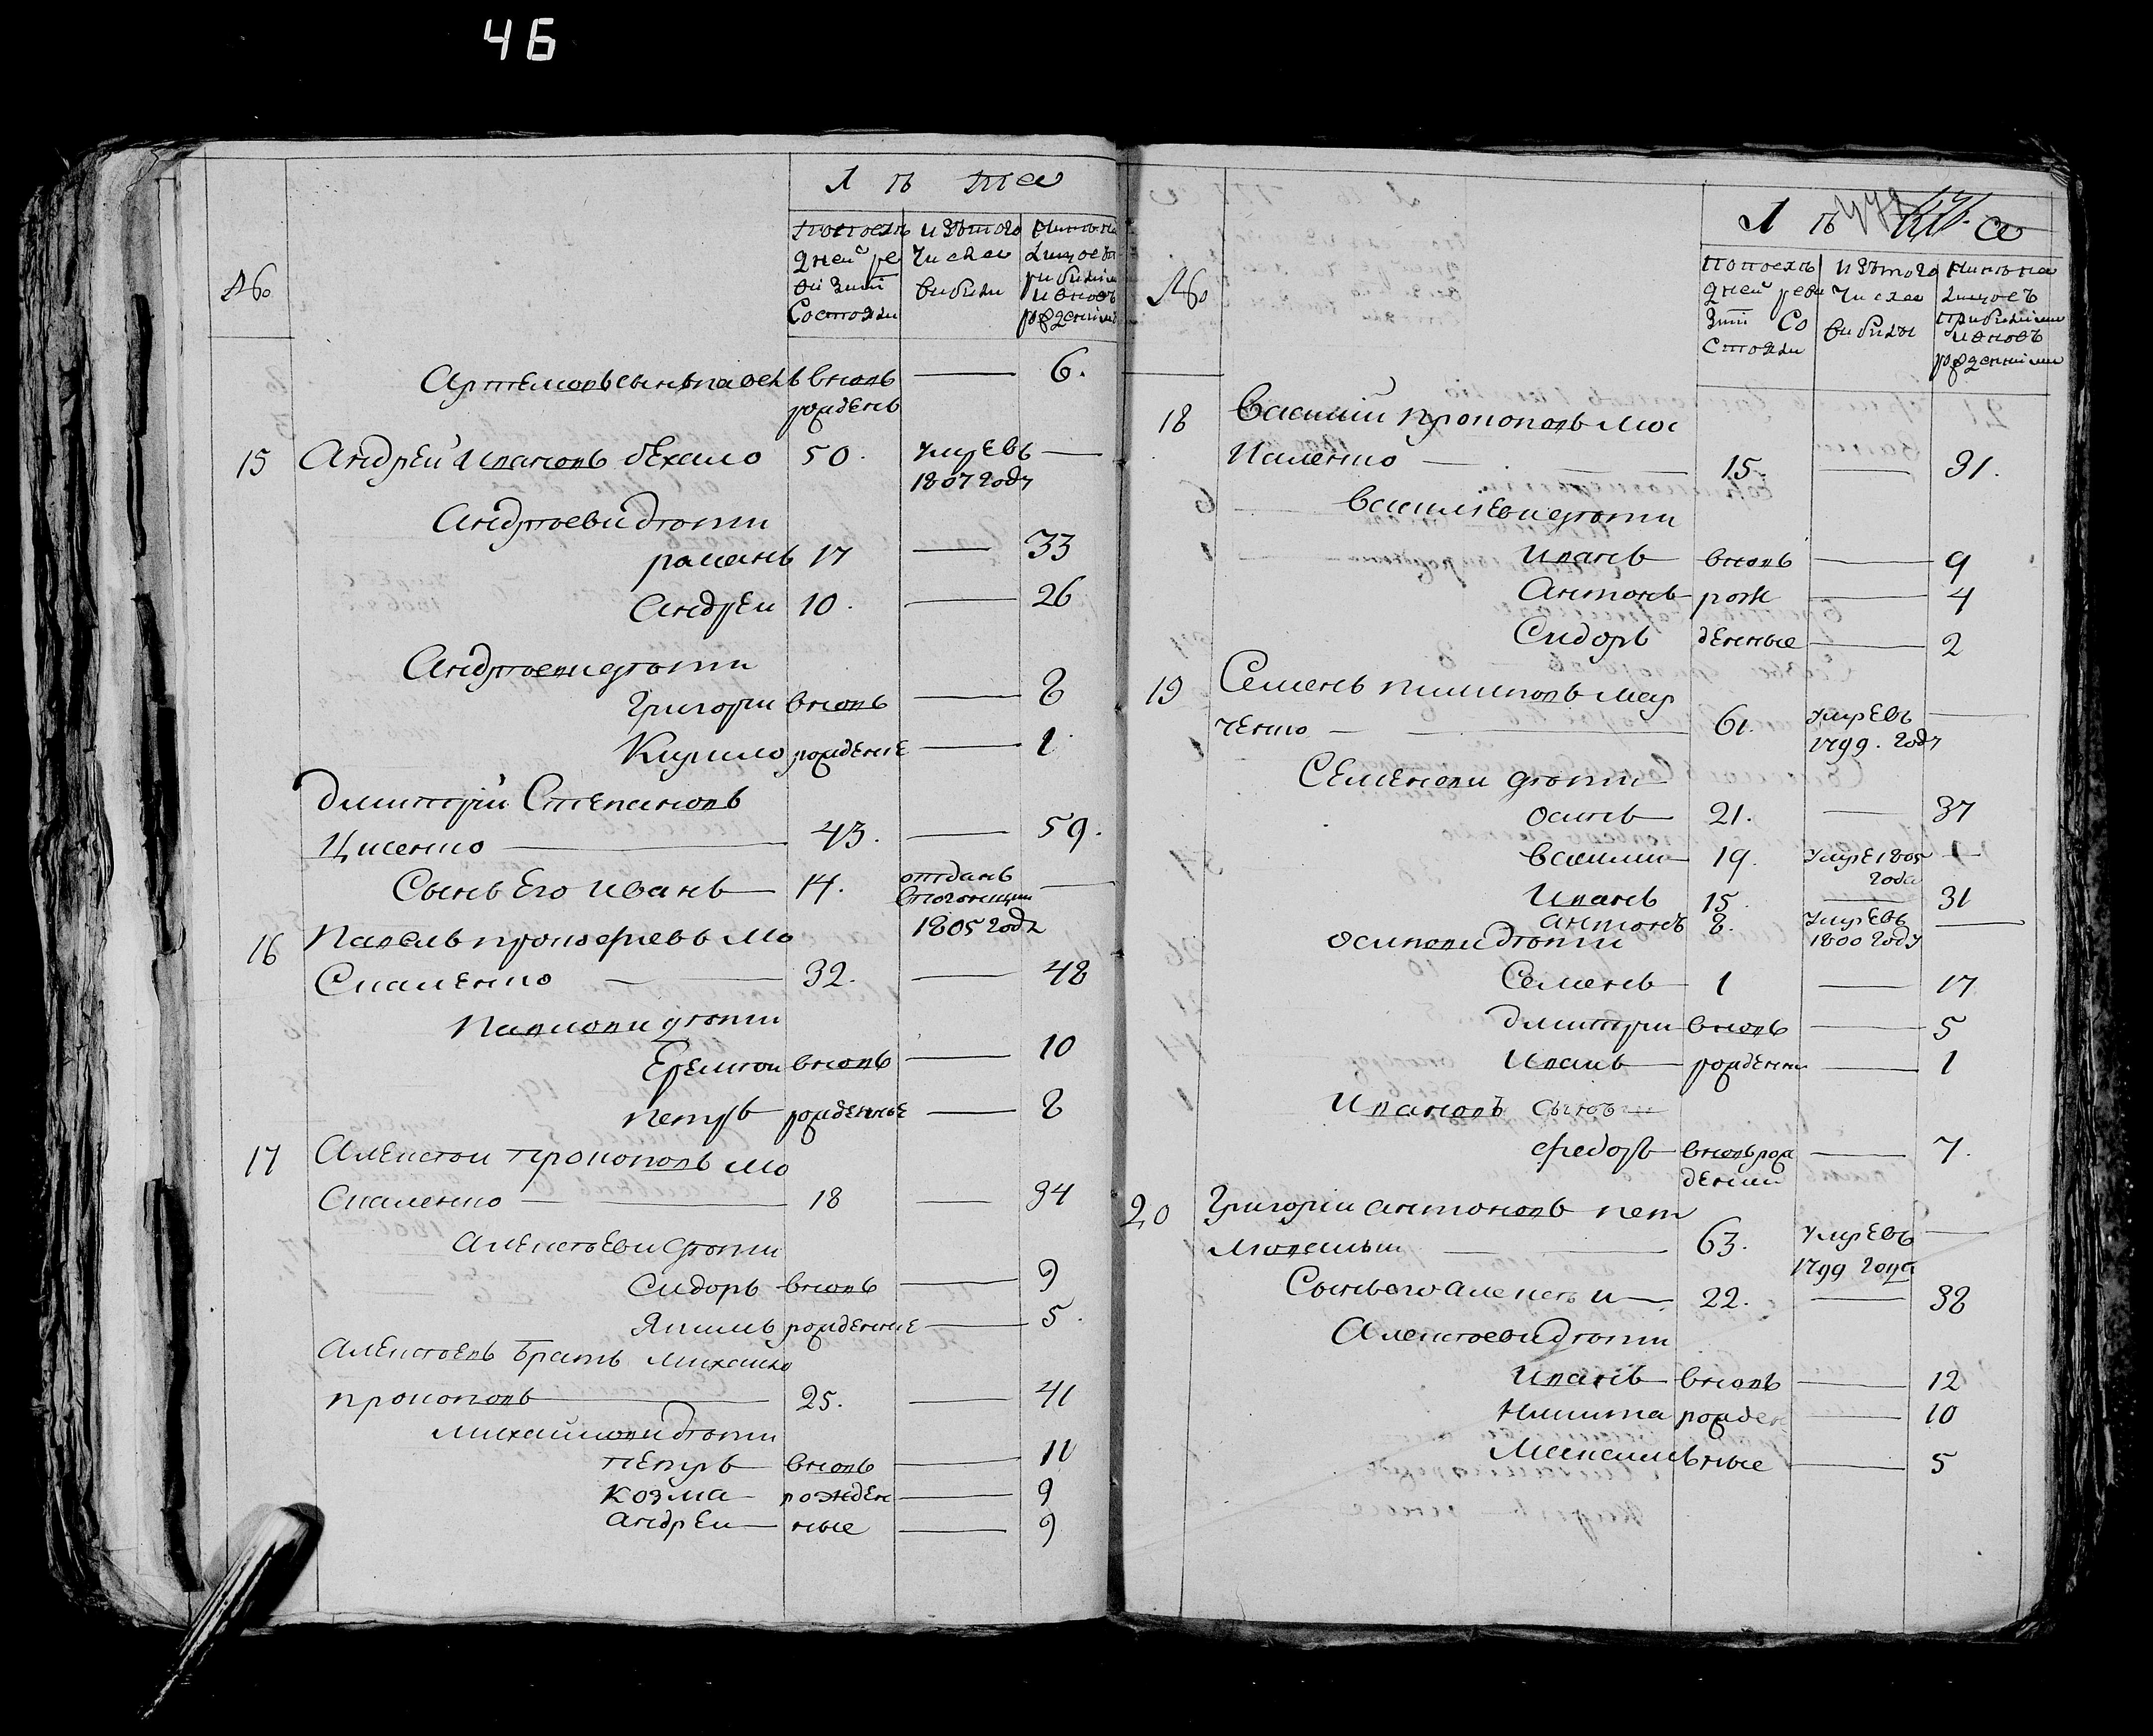 46
Лѣта
№
попослѣ дней ре визіи Состояли
изътого числа выбыли
нынѣ на лицо съ прибылыми и вновь рожденними
Артемовъ сынъ павелъ вновь — 6.
рожденъ
15 Андрей Ивановъ бехало 50. умревъ —
1807 году
Андрѣевы дѣти
романъ 17 — 33
Андреи 10. — 26
Андрѣевы дѣти
Григори вновь — 8
Кирило рожденіе — 1.
дмитрій Степановъ
Цисенко — 43. — 59.
Сынъ Его Иванъ — 14. отданъ —
1805 году
16 Павелъ прокофиевъ Мо
Скаленко — 32. — 48
Павловы дѣти
Еремѣи вновь — 10
петръ рожденные — 8
17 Алексѣи прокоповъ мо
Скаленко — 18 — 34
Алексѣевы дѣти
Сидоръ вновь — 9
Якимъ рожденніе — 5.
Алексѣевъ братъ михаило
прокоповъ — 25. — 41
михайловы дѣти
петръ вновь — 11
козма рожден — 9
андреи ные — 9
Лѣта
№
попослѣ дней реви зіи Состояли
изътого числа выбылы
нынѣ на лицо съ прибылыми и вновъ рожденними
18 Василій прокоповъ мос
каленко — 15. — 31.
василіевы дѣти
Иванъ вновь — 9
Антонъ рож — 4
Сидоръ денные — 2
19 Семенъ пилиповъ мар
ченко — 61. умревъ —
1799. году
Семеновы дѣти
осипъ 21. — 37
василий 19. умре 1805 —
года
Иванъ 15. — 31
антонъ 8. умревъ —
осиповы дѣти 1800 году
Семенъ 1 — 17
дмитри вновь — 5
Иванъ рожденни — 1
Ивановъ сынъ
федоръ вновь рож — 7.
денни
20 Григории антоновъ пет
63. умревъ —
1799 года
Сынъ его алексѣи — 22. — 38
Алексѣевы дѣти
Иванъ вновь — 12
Никита рожден — 10
Максимъ ные — 5